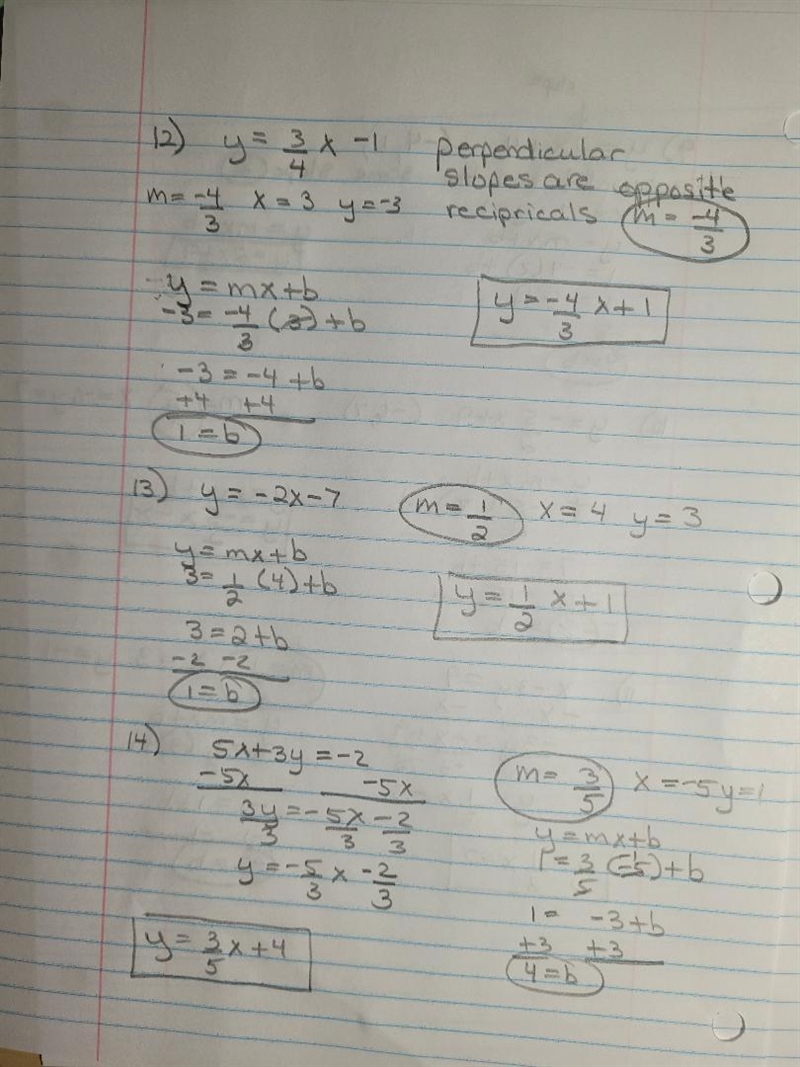 12) y = 3/4 x -1 perpendicular
slopes are opposite
m = -4/3 x = 3 y = -3 recipricals m = -4/3
y = mx + b
-3 = -4/3 (3) + b y = -4/3 x + 1
-3 = -4 + b
+4 +4
1 = b
13) y = -2x - 7 m = 1/2 x = 4 y = 3
y = mx + b
3 = 1/2 (4) + b y = 1/2 x + 1
3 = 2 + b
-2 -2
1 = b
14) 5x + 3y = -2 m = 3/5 x = -5 y = 1
-5x -5x
3y/3 = -5x/3 -2/3 y = mx + b
y = -5/3 x -2/3 1 = 3/5 (-5) + b
1 = -3 + b
y = 3/5 x + 4 +3 +3
4 = b